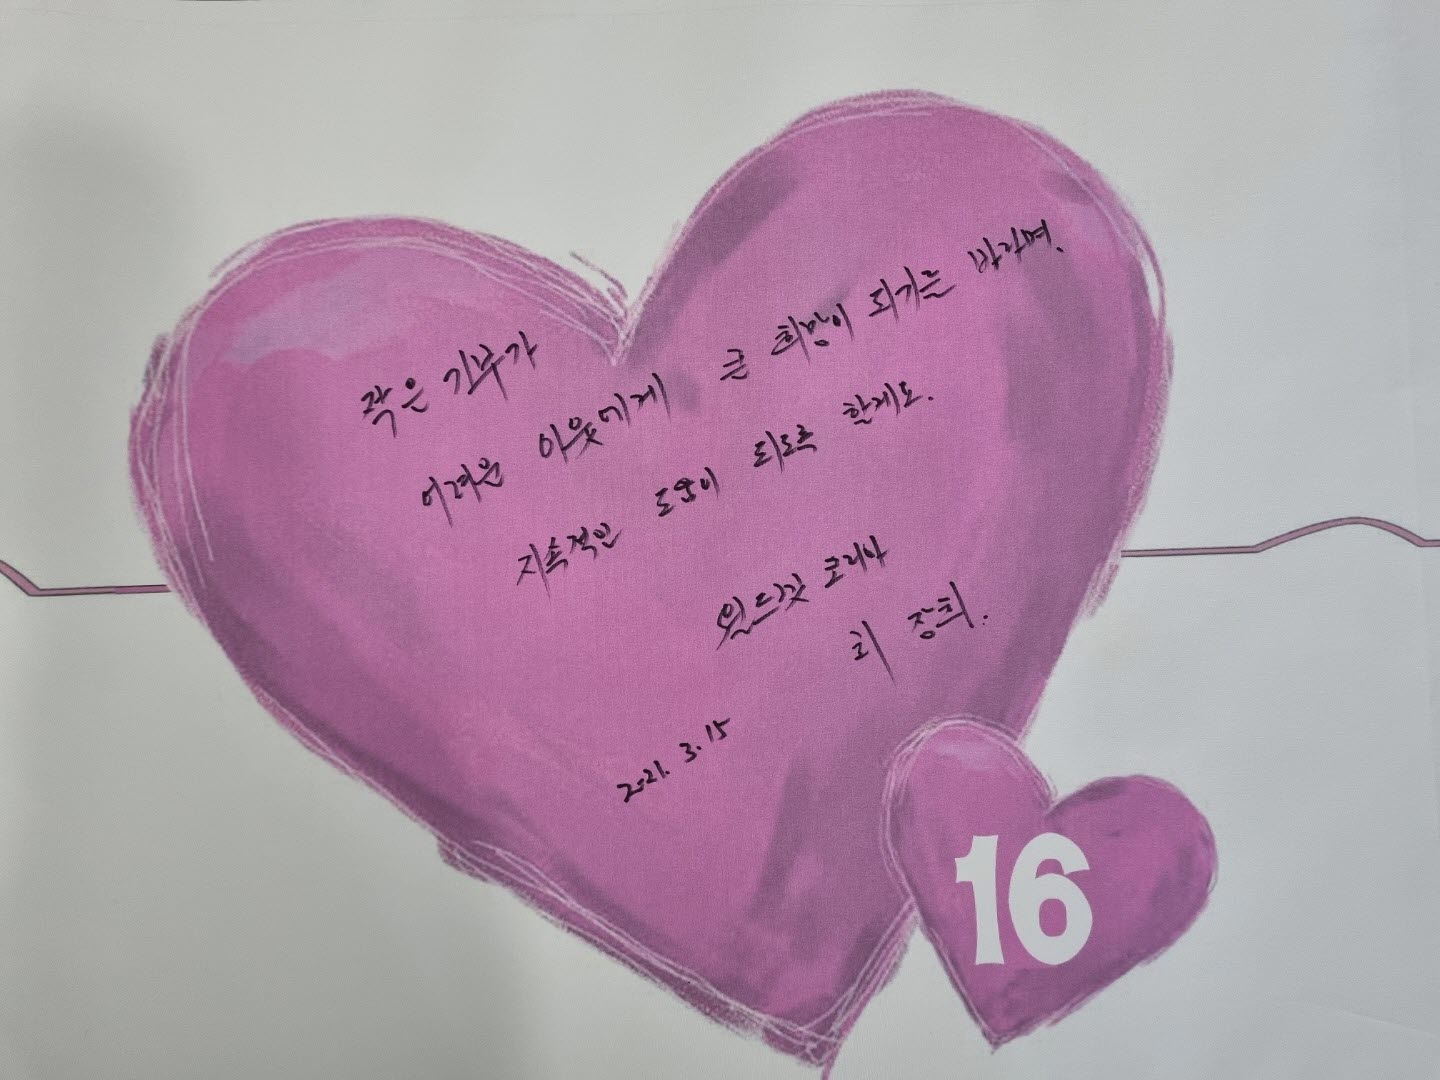 작은 기부가
어려운 이웃에게 큰 희망이 되기를 바라며.
지속적인 도움이 되도록 할게요.
월드기프 코리아
최 장희.
2021. 3. 15
16